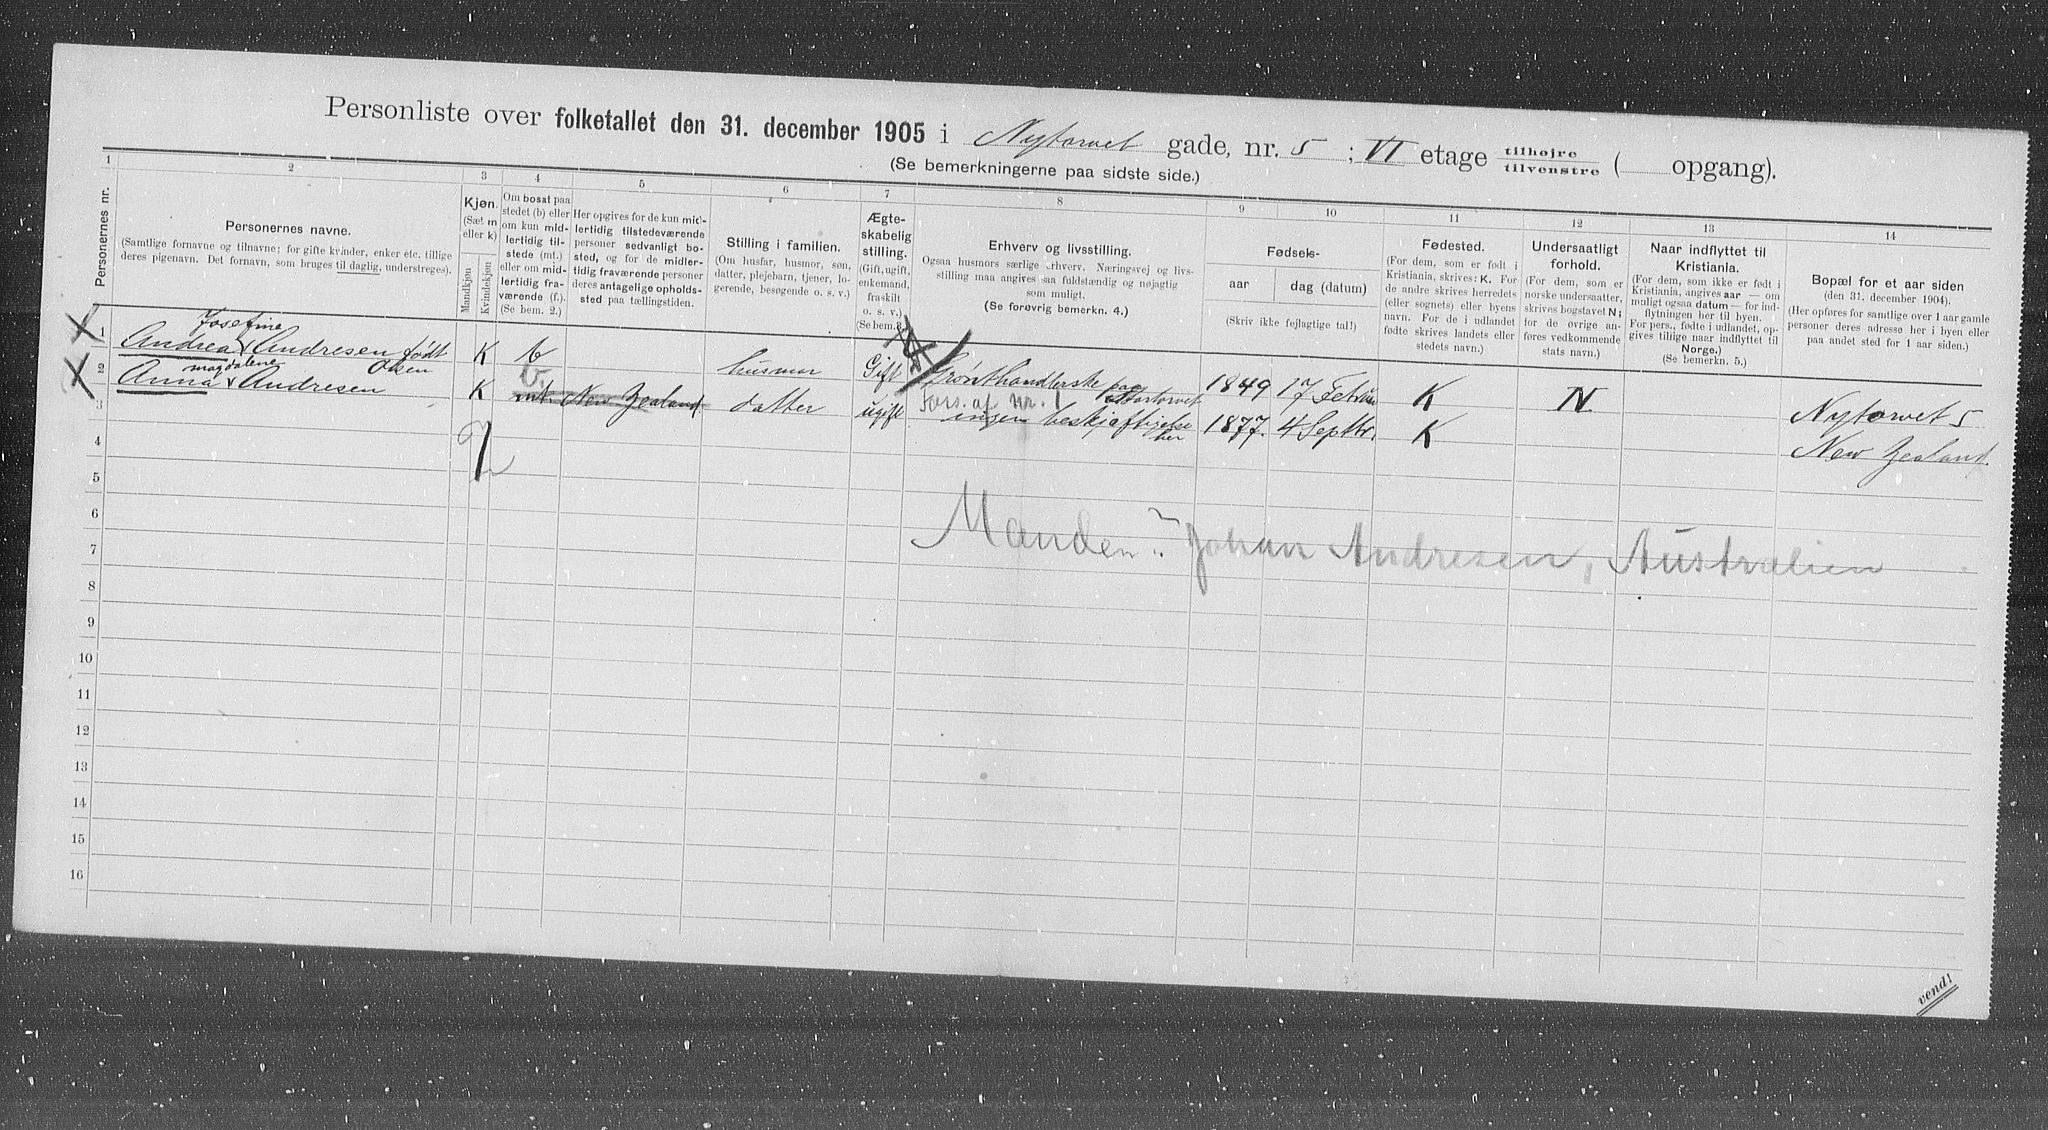 Personliste over folketallet den 31. december 1905 i Nytorvet gade, nr. 5 ; VI etage tilhøjre tilvenstre ( opgang).
(Se bemerkningerne paa sidste side.)
1 2 3 4 5 6 7 8 9 10 11 12 13 14
Personernes nr.
Personernes navne.
(Samtlige fornavne og tilnavne; for gifte kvinder, enker etc. tillige
deres pigenavn. Det fornavn, som bruges til daglig, understreges).
Kjøn.
(Sæt m
eller k)
Mandkjøn
Kvindekjøn
Om bosat paa
stedet (b) eller
om kun mid-
lertidig til-
stede (mt.)
eller om mid-
lertidig fra-
værende (f.).
(Se bem. 2.)
Her opgives for de kun mid-
lertidig tilstedeværende
personer sedvanlig bo-
sted, og for de midler-
tidig fraværende personer
deres antagelige opholds-
sted paa tællingstiden.
Stilling i familien.
(Om husfar, husmor, søn,
datter, plejebarn, tjener, lo-
gerende, besøgende o. s. v.)
Ægte-
skabelig
stilling.
(Gift, ugift,
enkemand,
fraskilt
o. s. v.)
(Se bem.
Erhverv og livsstilling.
Ogsaa husmors særlige erhverv. Næringsvej og livs-
stilling maa angives saa fuldstændig og nøjagtig
som muligt.
(Se forøvrig bemerkn. 4.)
Fødsels-
aar
dag (datum)
(Skriv ikke fejlagtige tal!)
Fødested.
(For dem, som er født i
Kristiania, skrives: K. For
de andre skrives herredets
(eller sognets) eller byens
navn. For de i udlandet
fødte skrives landets eller
stedets navn.)
Undersaatligt
forhold.
(For dem, som er
norske undersaatter,
skrives bogstavet N;
for de øvrige an-
føres vedkommende
stats navn.)
Naar indflyttet til
Kristiania.
(For dem, som ikke er født i
Kristiania, angives aar — om
muligt ogsaa datum — for ind-
flytningen her til byen.
For pers., fødte i udlandet, op-
gives tillige naar indflyttet til
Norge.)
(Se bemerkn. 5.)
Bopæl for et aar siden
(den 31. december 1904).
(Her opføres for samtlige over 1 aar gamle
personer deres adresse her i byen eller
paa andet sted for 1 aar siden.)
Josefine
1 Andrea Andresen født K b husmor Gift Grønthandlerske paa 1849 17 Februar K N Nytorvet 5
Olsen Stortorvet
magdalene b. Fors. af nr. 1
2 Anna Andresen K mt. New Zealand datter ugift ingen beskjæftigelse 1877. 4 Septbr. K New Zealand
her
3
4
5
6
Manden: Johan Andresen, Australien
7
8
9
10
11
12
13
14
15
16
vend!